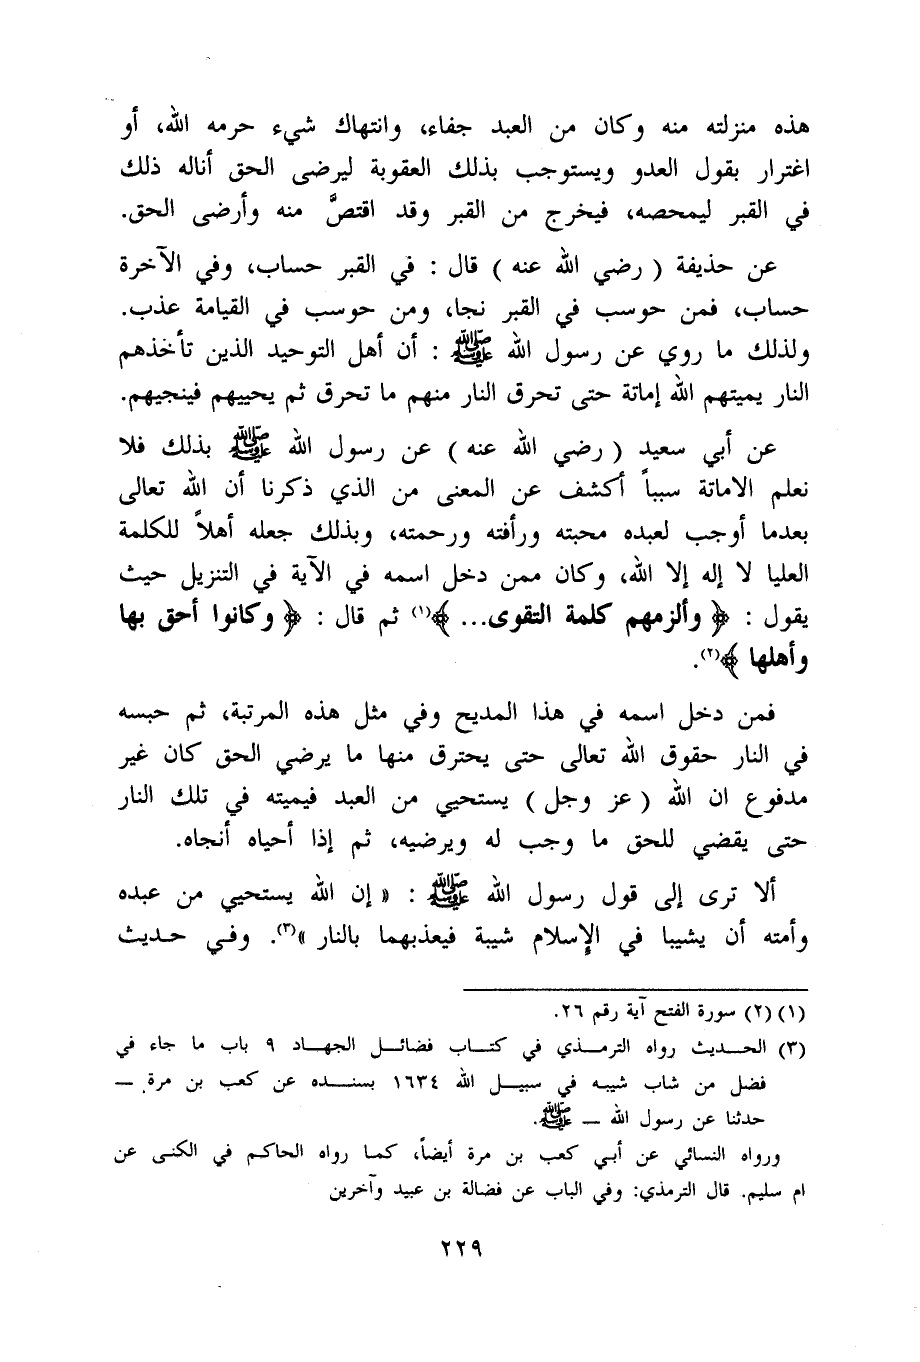 هذه منزلته منه وكان من العبد جفاء، وانتهاك شيء حرمه الله، أو
اغترار بقول العدو ويستوجب بذلك العقوبة ليرضى الحق أناله ذلك
في القبر ليمحصه، فيخرج من القبر وقد اقتصَّ منه وأرضى الحق.
عن حذيفة ( رضي الله عنه ) قال : في القبر حساب، وفي الآخرة
حساب، فمن حوسب في القبر نجا، ومن حوسب في القيامة عذب.
ولذلك ما روي عن رسول الله ﷺ : أن أهل التوحيد الذين تأخذهم
النار يميتهم الله إماتة حتى تحرق النار منهم ما تحرق ثم يحييهم فينجيهم.
عن أبي سعيد ( رضي الله عنه ) عن رسول الله ﷺ بذلك فلا
نعلم الاماتة سبباً أكشف عن المعنى من الذي ذكرنا أن الله تعالى
بعدما أوجب لعبده محبته ورأفته ورحمته، وبذلك جعله أهلاً للكلمة
العليا لا إله إلا الله، وكان ممن دخل اسمه في الآية في التنزيل حيث
يقول : ﴿ وألزمهم كلمة التقوى... ﴾(١) ثم قال : ﴿ وكانوا أحق بها
وأهلها ﴾(٢).
فمن دخل اسمه في هذا المديح وفي مثل هذه المرتبة، ثم حبسه
في النار حقوق الله تعالى حتى يحترق منها ما يرضي الحق كان غير
مدفوع ان الله ( عز وجل ) يستحيي من العبد فيميته في تلك النار
حتى يقضي للحق ما وجب له ويرضيه، ثم إذا أحياه أنجاه.
ألا ترى إلى قول رسول الله ﷺ : « إن الله يستحيي من عبده
وأمته أن يشيبا في الإسلام شيبة فيعذبهما بالنار »(٣). وفي حديث
(١) (٢) سورة الفتح آية رقم ٢٦.
(٣) الحديث رواه الترمذي في كتاب فضائل الجهاد ٩ باب ما جاء في
فضل من شاب شيبه في سبيل الله ١٦٣٤ بسنده عن كعب بن مرة. —
حدثنا عن رسول الله — ﷺ.
ورواه النسائي عن أبي كعب بن مرة أيضاً، كما رواه الحاكم في الكنى عن
ام سليم. قال الترمذي: وفي الباب عن فضالة بن عبيد وآخرين
٢٢٩